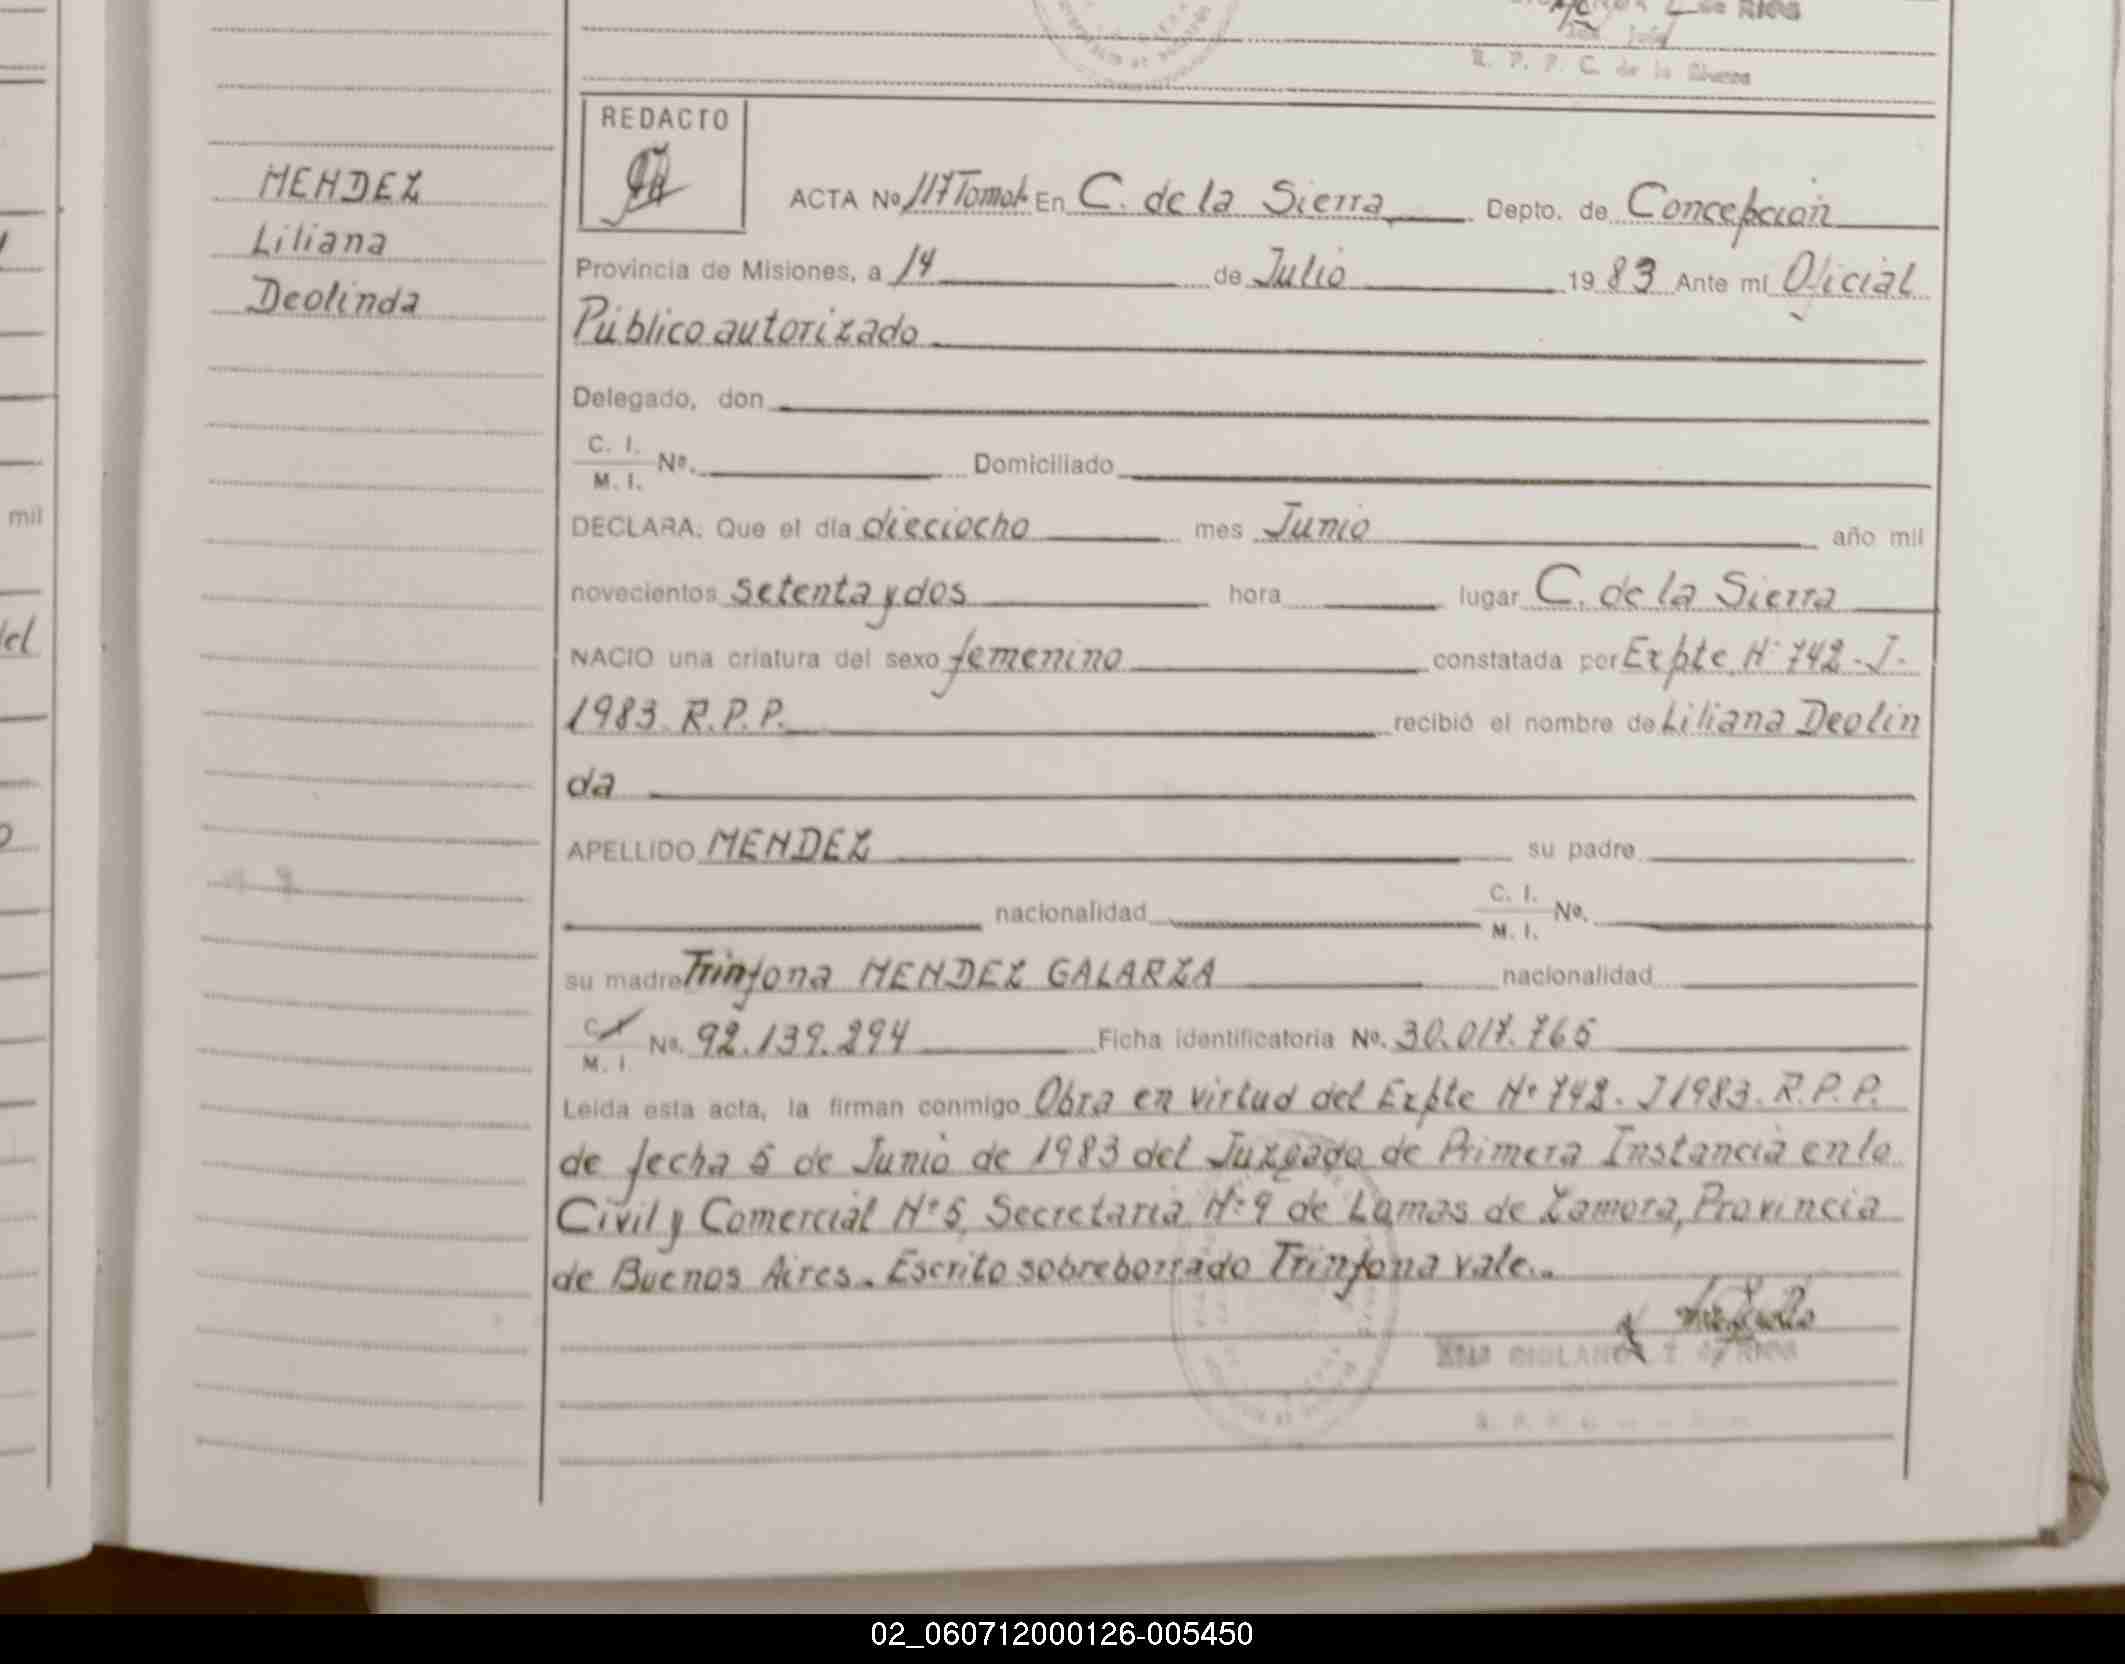 de RIOS
R. P. P. C. de la Sierra
REDACTO
MENDEZ
Liliana
Deolinda
ACTA No 117 Tomo I En C. de la Sierra Depto. de Concepción
Provincia de Misiones, a 14 de Julio 1983 Ante mí Oficial
Público autorizado
Delegado, don
C. I.
M. I. Nº. Domiciliado
DECLARA: Que el día dieciocho mes Junio año mil
novecientos setenta y dos hora lugar C. de la Sierra
NACIO una criatura del sexo femenino constatada por Expte. Nº 742-J-
1983. R.P.P. recibió el nombre de Liliana Deolin
da
APELLIDO MENDEZ su padre
nacionalidad C. I.
M. I. Nº.
su madre Trinfona MENDEZ GALARZA nacionalidad
C. I.
M. I. Nº. 92.139.294 Ficha identificatoria Nº. 30.017.765
Leída esta acta, la firman conmigo Obra en virtud del Expte Nº 742. J 1983. R.P.P.
de fecha 5 de Junio de 1983 del Juzgado de Primera Instancia en lo
Civil y Comercial Nº 5, Secretaría Nº 9 de Lomas de Zamora, Provincia
de Buenos Aires. Escrito sobreborrado Trinfona vale.
de RIOS
mil
del
02_060712000126-005450